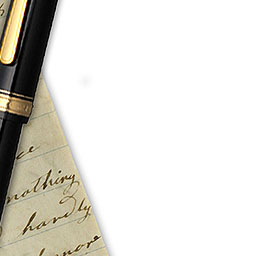 ce
nothing
hardly